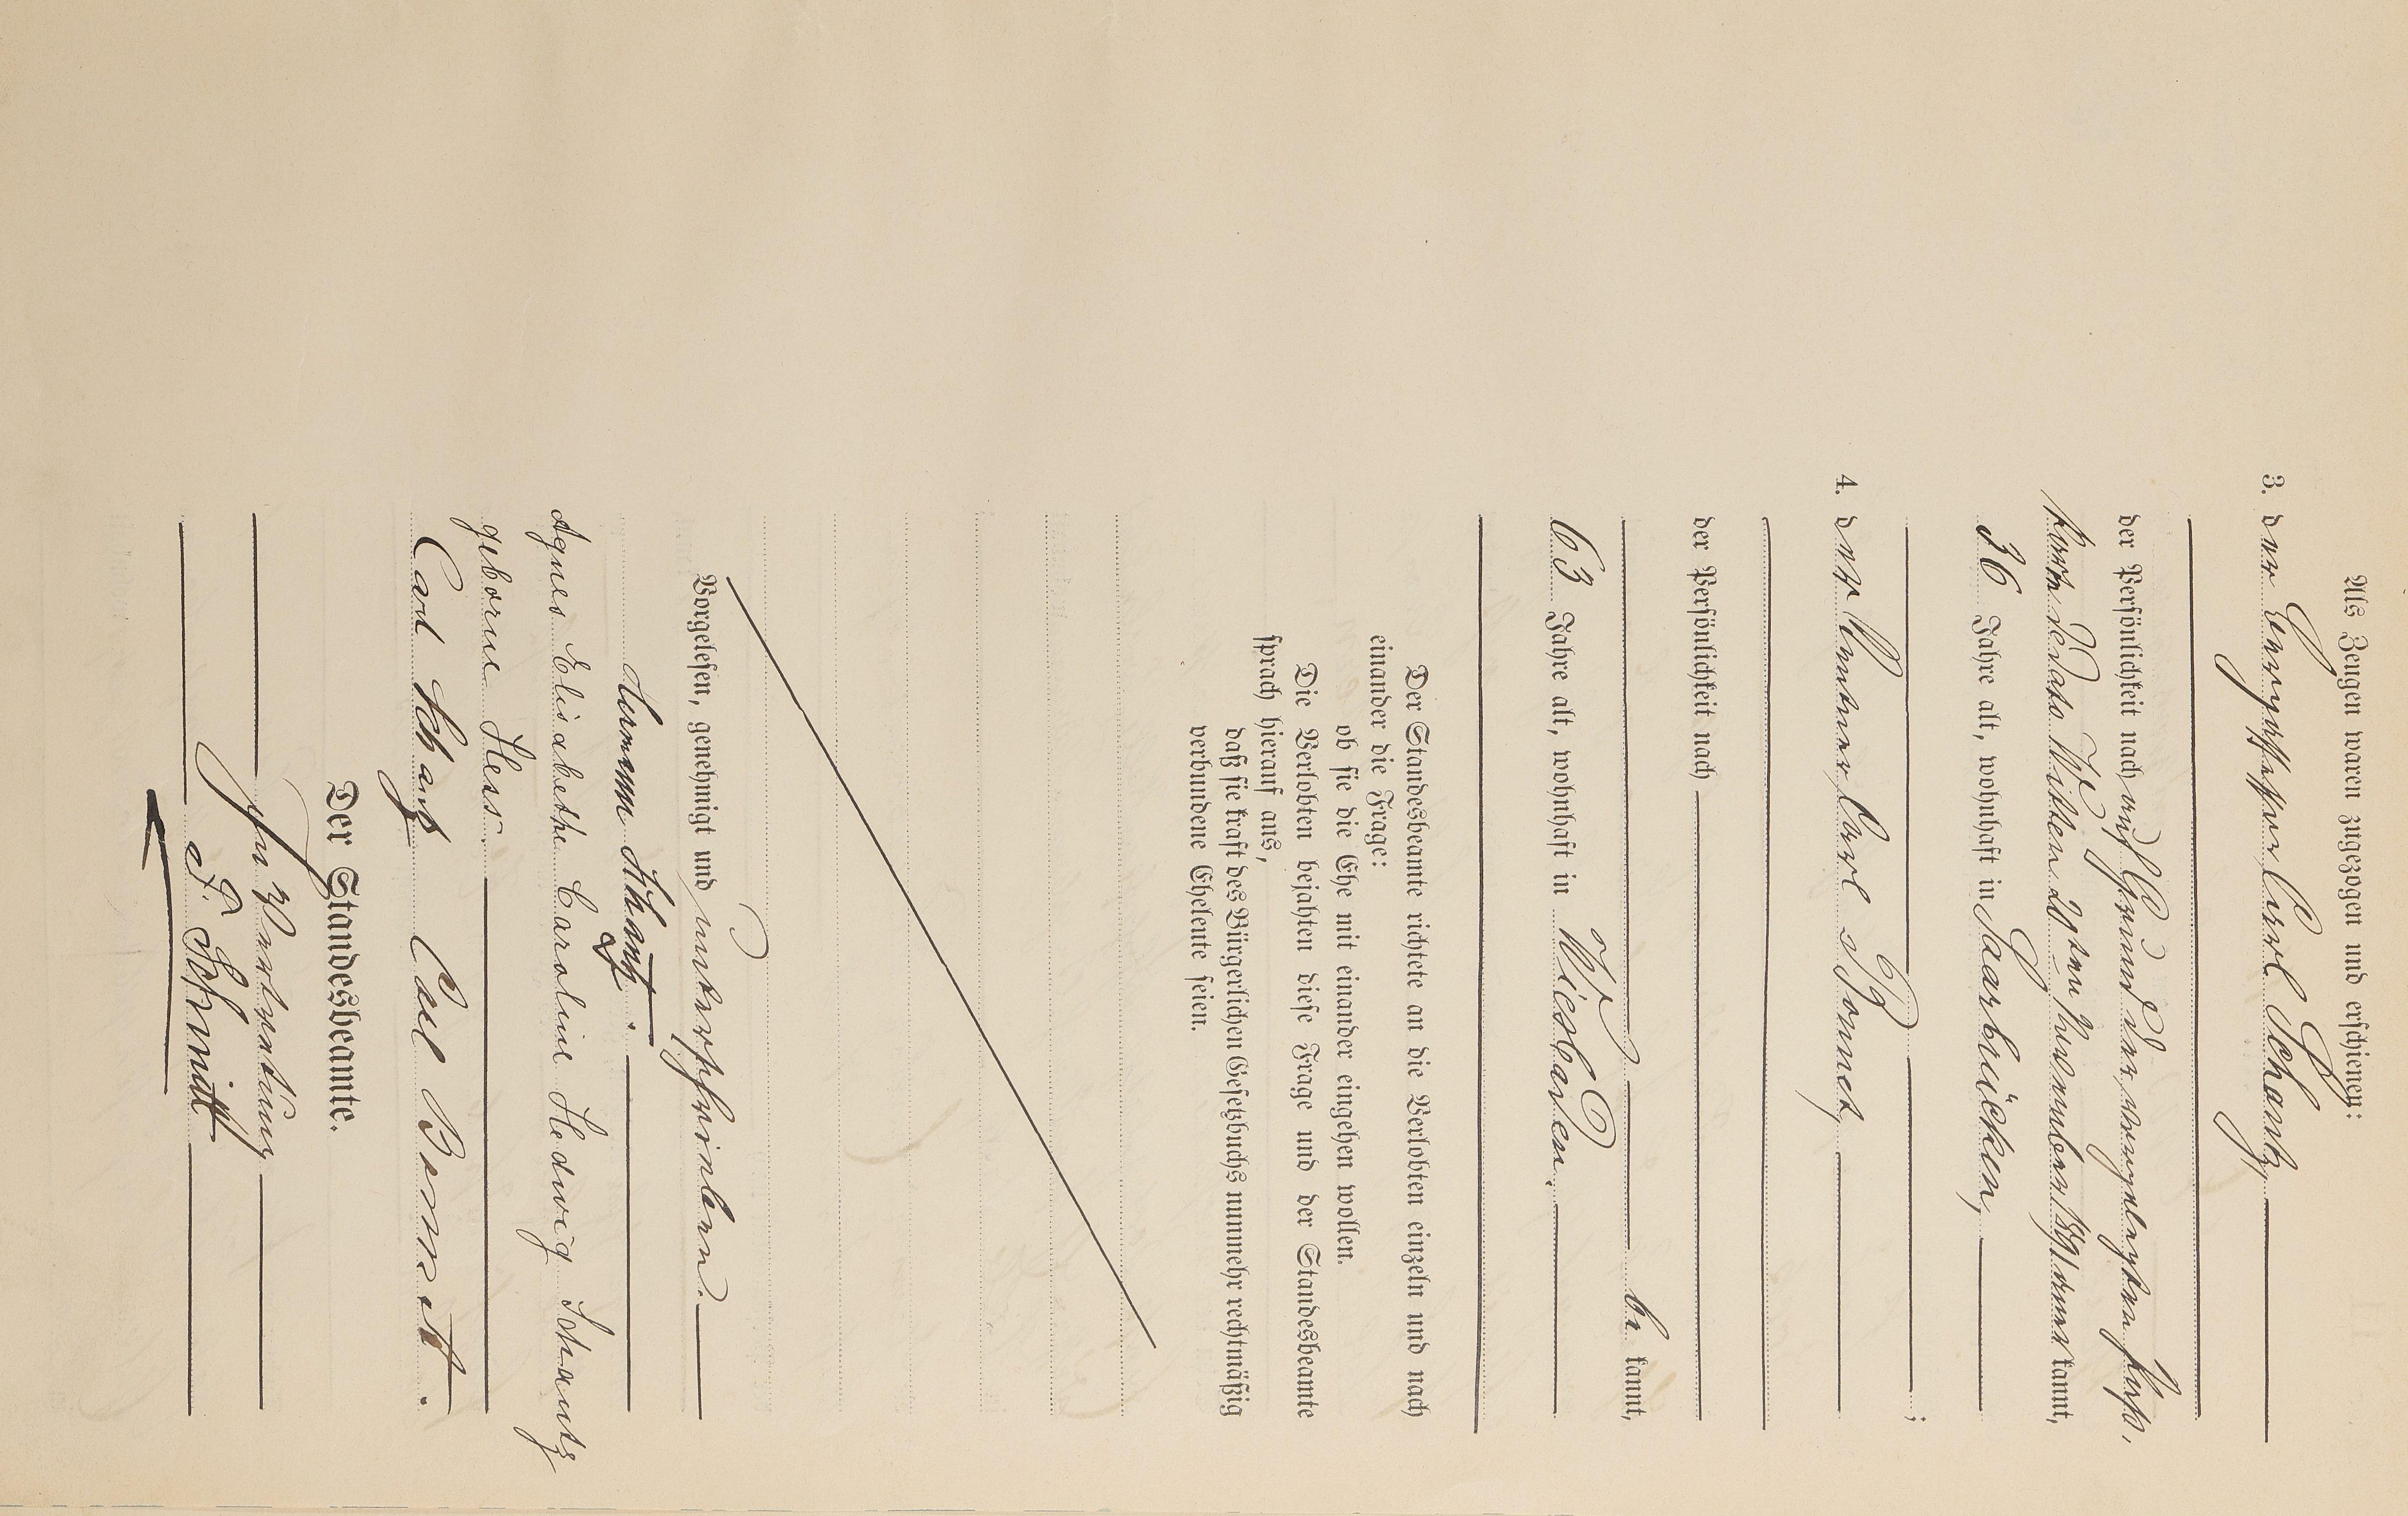 Als Zeugen waren zugezogen und erschienen:
3. der Bergassessor Carl Schantz,
der Persönlichkeit nach auf Grund der vorgelegten Pass-
karte de dato Witten 29sten November 1891 anerkannt,
36 Jahre alt, wohnhaft in Saarbrücken,
;
4. der Rentner Carl Bonnet,
der Persönlichkeit nach
be kannt,
63 Jahre alt, wohnhaft in Wiesbaden.
Der Standesbeamte richtete an die Verlobten einzeln und nach
einander die Frage:
ob sie die Ehe mit einander eingehen wollen.
Die Verlobten bejahten diese Frage und der Standesbeamte
sprach hierauf aus,
daß sie kraft des Bürgerlichen Gesetzbuchs nunmehr rechtmäßig
verbundene Eheleute seien.
Vorgelesen, genehmigt und unterschrieben.
Hermann Schantz.
Agnes Elisabethe Caroline Hedwig Schantz
geborne Hess.
Carl Schantz Carl Bonnet.
Der Standesbeamte.
In Vertretung
F. Schmidt